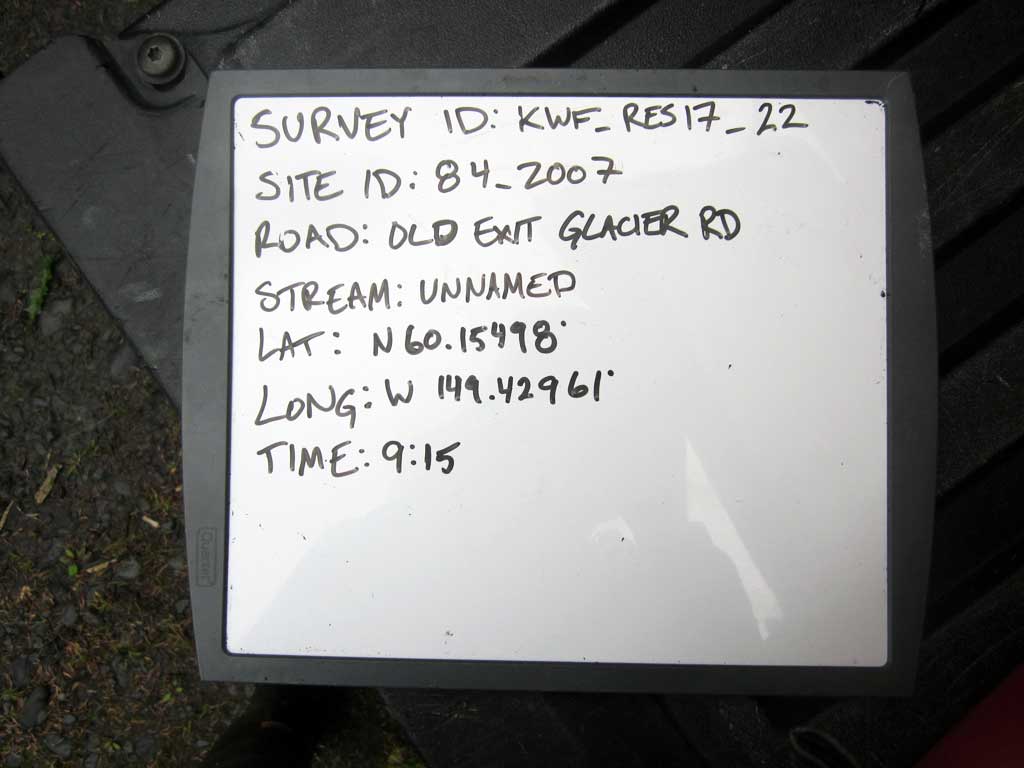 SURVEY ID: KWF_RES17_22
SITE ID: 84_2007
ROAD: OLD EXIT GLACIER RD
STREAM: UNNAMED
LAT: N 60.15498°
LONG: W 149.42961°
TIME: 9:15
Quartet